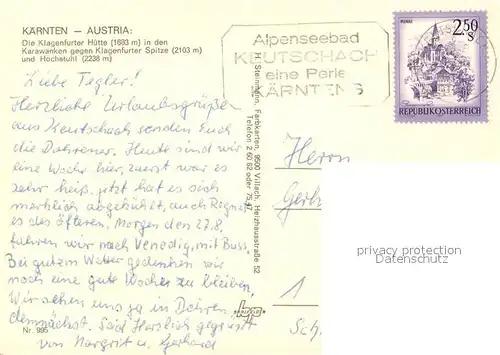 KÄRNTEN – AUSTRIA:
Die Klagenfurter Hütte (1663 m) in den
Karawanken gegen Klagenfurter Spitze (2103 m)
und Hochstuhl (2238 m)
Liebe Tegler!
Herzliche Urlaubsgrüße
aus Keutschach senden Euch
die Dohrener. Heute sind wir
eine Woche hier, zuerst war es
sehr heiß, jetzt hat es sich
merklich abgekühlt, auch Regnet
es des öfteren. Morgen den 27.8.
fahren wir nach Venedig, mit Buss.
Bei gutem Wetter gedenken wir
noch eine gute Woche zu bleiben,
Wir sehen uns ja in Dohren
demnächst. Seid Herzlich gegrüßt
von Margrit u. Gerhard
Nr. 995
H. Steinmann, Farbkarten, 9500 Villach, Heizhausstraße 52
Telefon 2 60 62 oder 75 47
Alpenseebad
KEUTSCHACH
eine Perle
KÄRNTENS
2.50 S
REPUBLIK ÖSTERREICH
Herrn
Gerh
1
Sch
privacy protection
Datenschutz